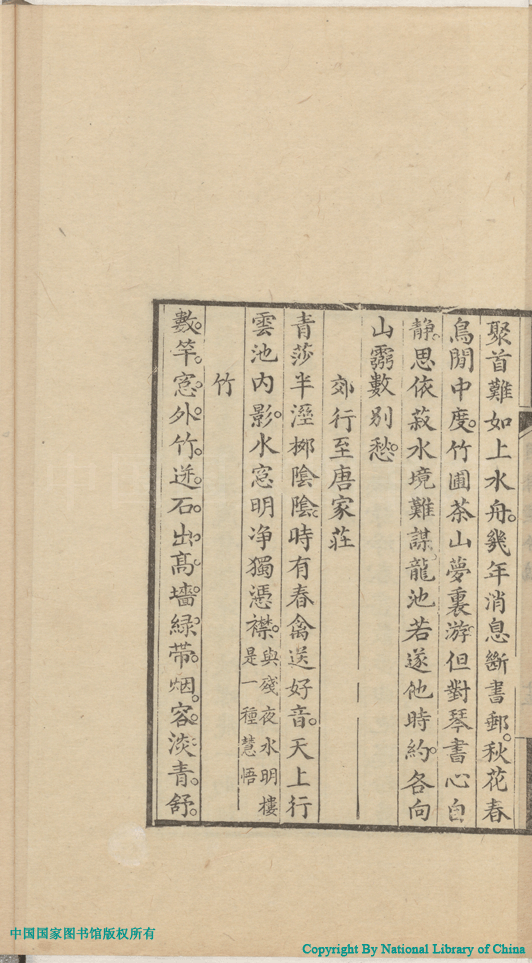 聚首難如上水舟。幾年消息斷書郵。秋花春
鳥閒中度。竹圃茶山夢裏游但對琴書心自
静。思依菽水境難謀。龍池若遂他時約。各向
山霧數別愁。
郊行至唐家莊
青莎半溼栁陰陰。時有春禽送好音。天上行
雲池内影。水窓明净獨憑襟。與殘夜水明樓
是一種慧悟
竹
數。竿。窓。外。竹。迸。石。出。髙。墻。緑。帶。烟。容。淡。青。舒。
中国国家图书馆版权所有
Copyright By National Library of China